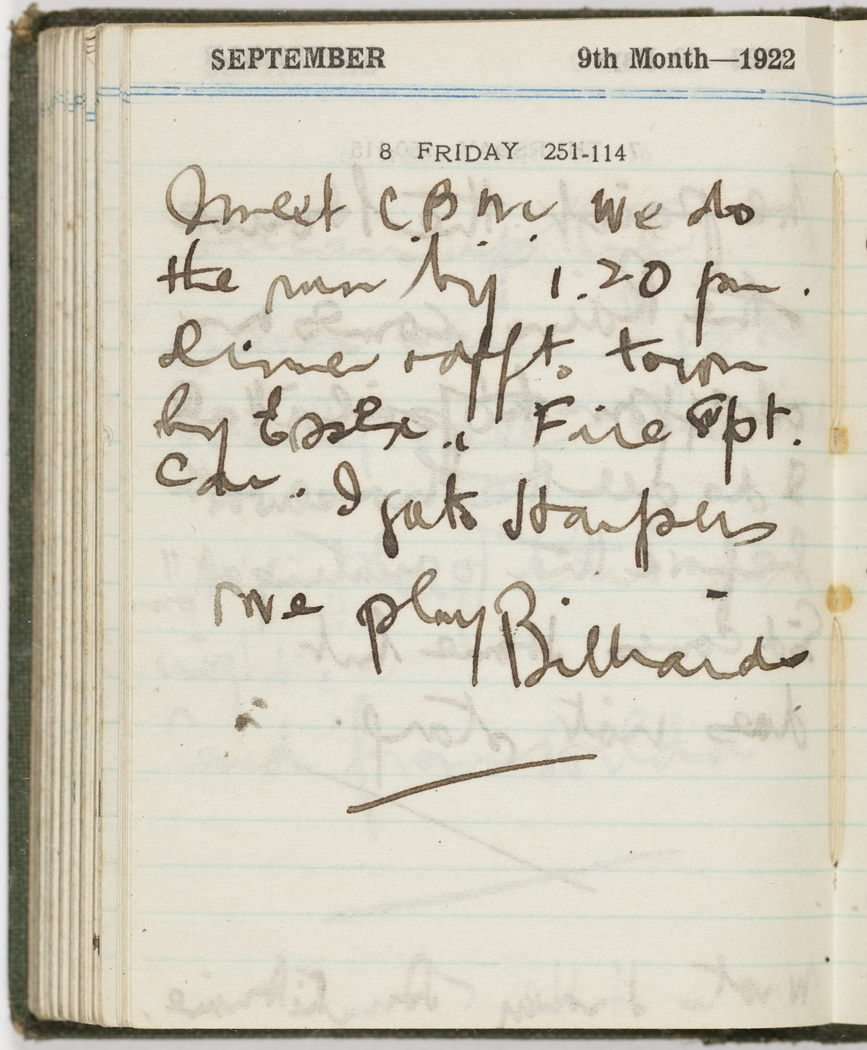 SEPTEMBER 9th Month—1922
8 FRIDAY 251-114
I meet C B M. We do
the run by 1.20 pm.
Dinner & off to town
by Essex. Fire Dpt.
Car. I get Harpers
we play Billiards